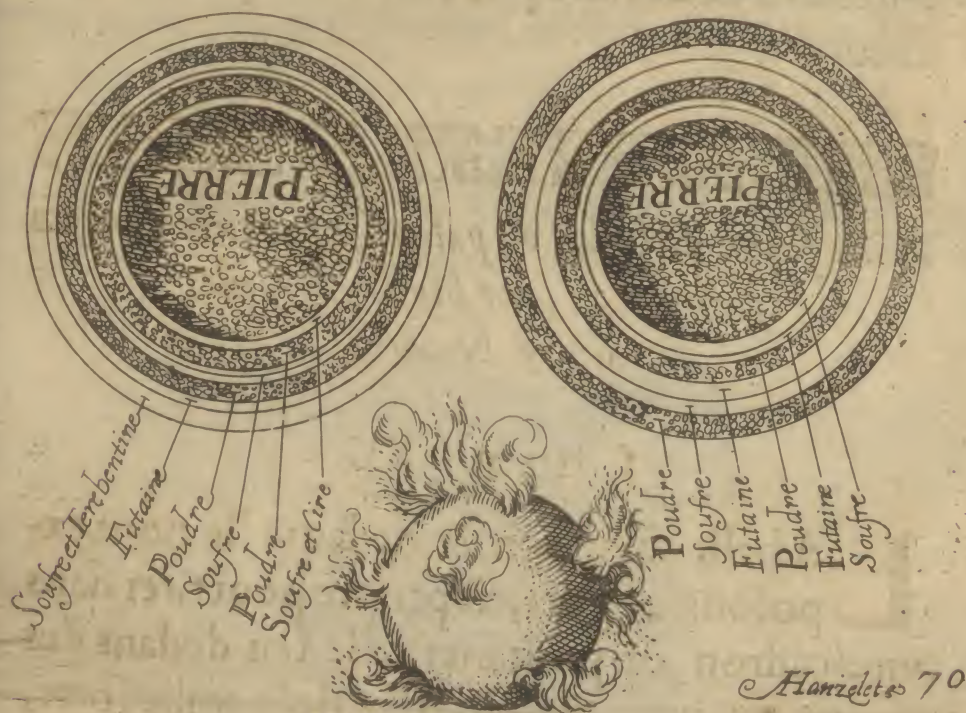 PIERRE
PIERRE
Soufre et Terebentine
Futaine
Poudre
Soufre
Poudre
Soufre et Cire
Poudre
Soufre
Futaine
Poudre
Futaine
Soufre
Hanzelet
70